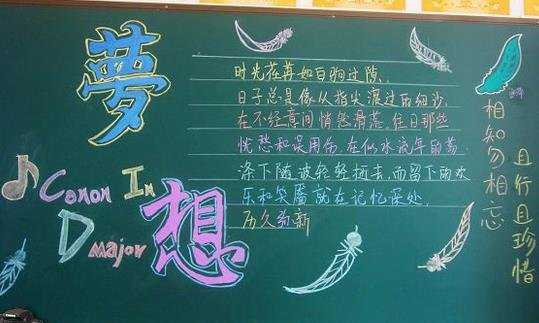 夢想
Canon In
D major
时光荏苒如白驹过隙、
日子总是像从指尖渡过的细沙,
在不经意间悄然滑落。往日那些
忧愁和误用伤,在似水流年的荡
涤下随波轻轻逝去,而留下的欢
乐和笑靥就在记忆深处,
历久弥新
相知勿相忘
且行且珍惜